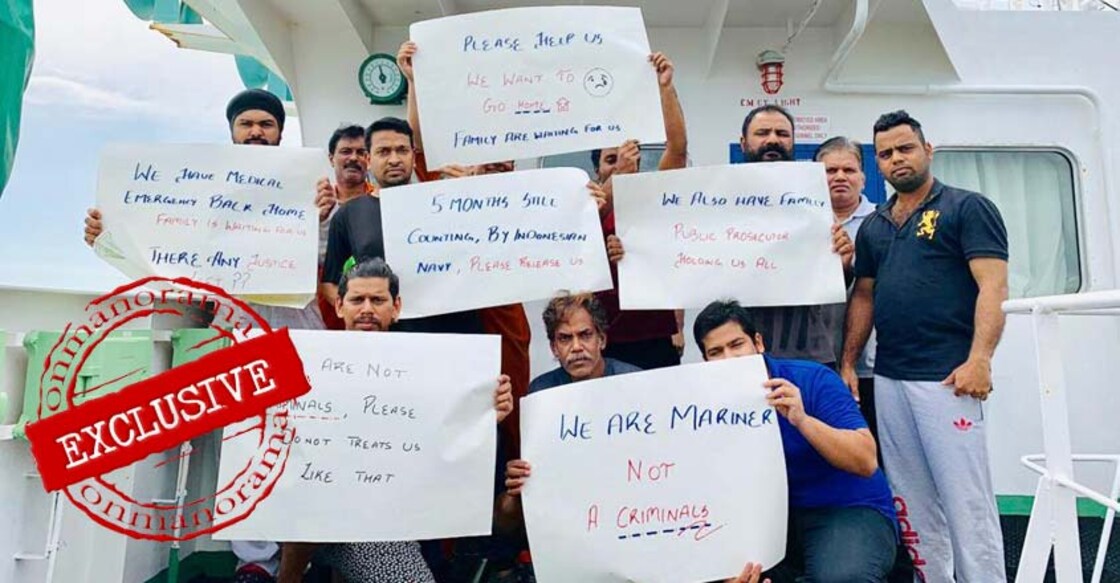 PLEASE HELP US
WE WANT TO
GO HOME
FAMILY ARE WAITING FOR US
EM CY LIGHT
WE HAVE MEDICAL
EMERGENCY BACK HOME
FAMILY IS WAITING FOR US
THERE ANY JUSTICE
??
5 MONTHS STILL
COUNTING, BY INDONESIAN
NAVY, PLEASE RELEASE US
WE ALSO HAVE FAMILY
PUBLIC PROSECUTOR
HOLDING US ALL
ARE NOT
, PLEASE
DO NOT TREATS US
LIKE THAT
WE ARE MARINER
NOT
A CRIMINALS
onmanorama
EXCLUSIVE
onmanorama
adidas